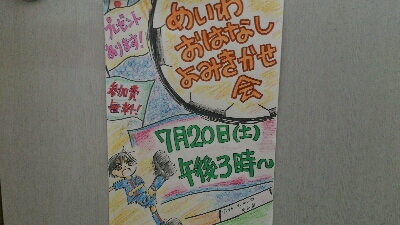 プレゼント
あります!
めいわ
おはなし
よみきかせ
会
参加費
無料!
7月20日(土)
午後3時〜